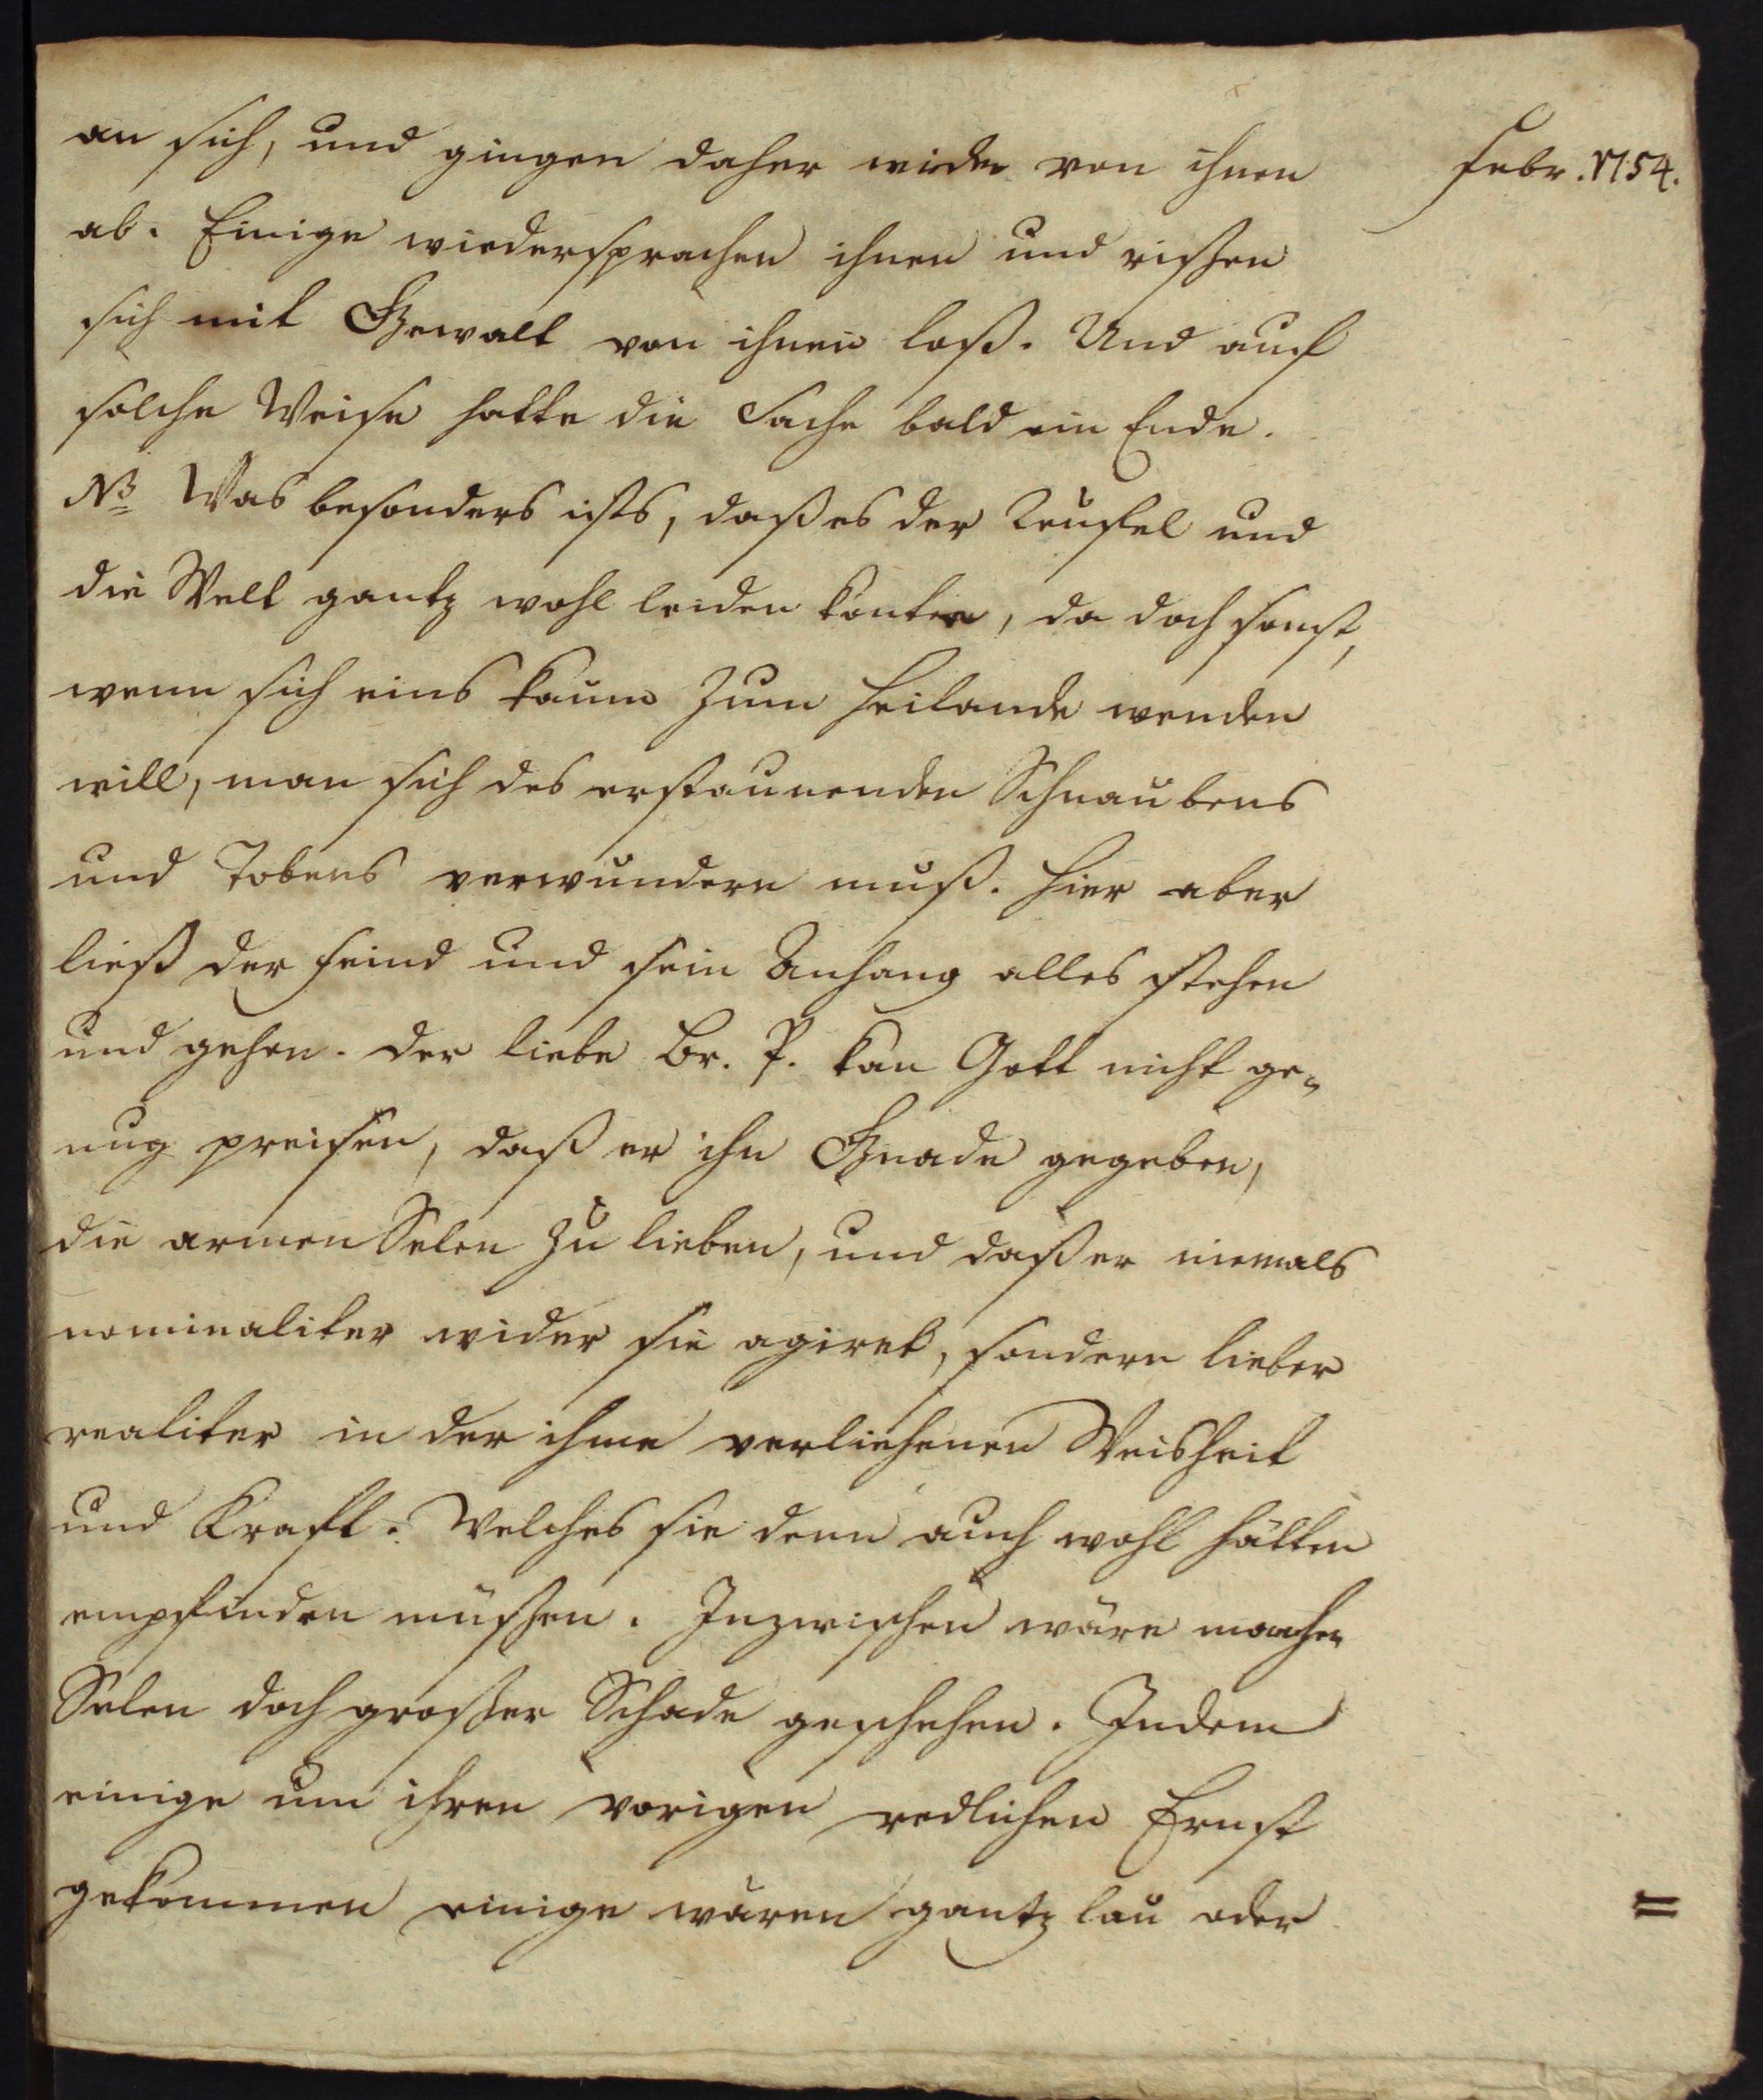 an sich, und gingen daher wider von ihnen
Febr. 1754.
ab. Einige wiedersprachen ihnen und rißen
sich mit Gewalt von ihnen loß. Und auf
solche Weise hatte die Sache bald ein Ende.
NB Was besonders ists, daß es der Teufel und
die Welt gantz wohl leiden konten, da doch sonst,
wenn sich eins kaum zum Heilande wenden
will, man sich des erstaunenden Schnaubens
und Tobens verwundern muß. Hier aber
ließ der Feind und sein Anhang alles stehen
und gehen. Der liebe Br. P. kan Gott nicht ge„
nug preisen, daß er ihn Gnade gegeben,
die armen Selen zu lieben, und daß er niemals
nominaliter wider sie agiret, sondern lieber
realiter in der ihme verliehenen Weisheit
und Kraft. Welches sie denn auch wohl hätten
empfinden müßen. Inzwischen wäre mancher
Selen doch großer Schade geschehen. Indem
einige um ihren vorigen redlichen Ernst
gekommen einige wären gantz lau oder
=